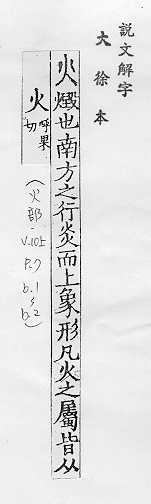 説文解字
大徐本
火燬也南方之行炎而上象形凡火之屬皆从
火呼果切
(火部-
V.105
P.7
b.1
~
b.2)